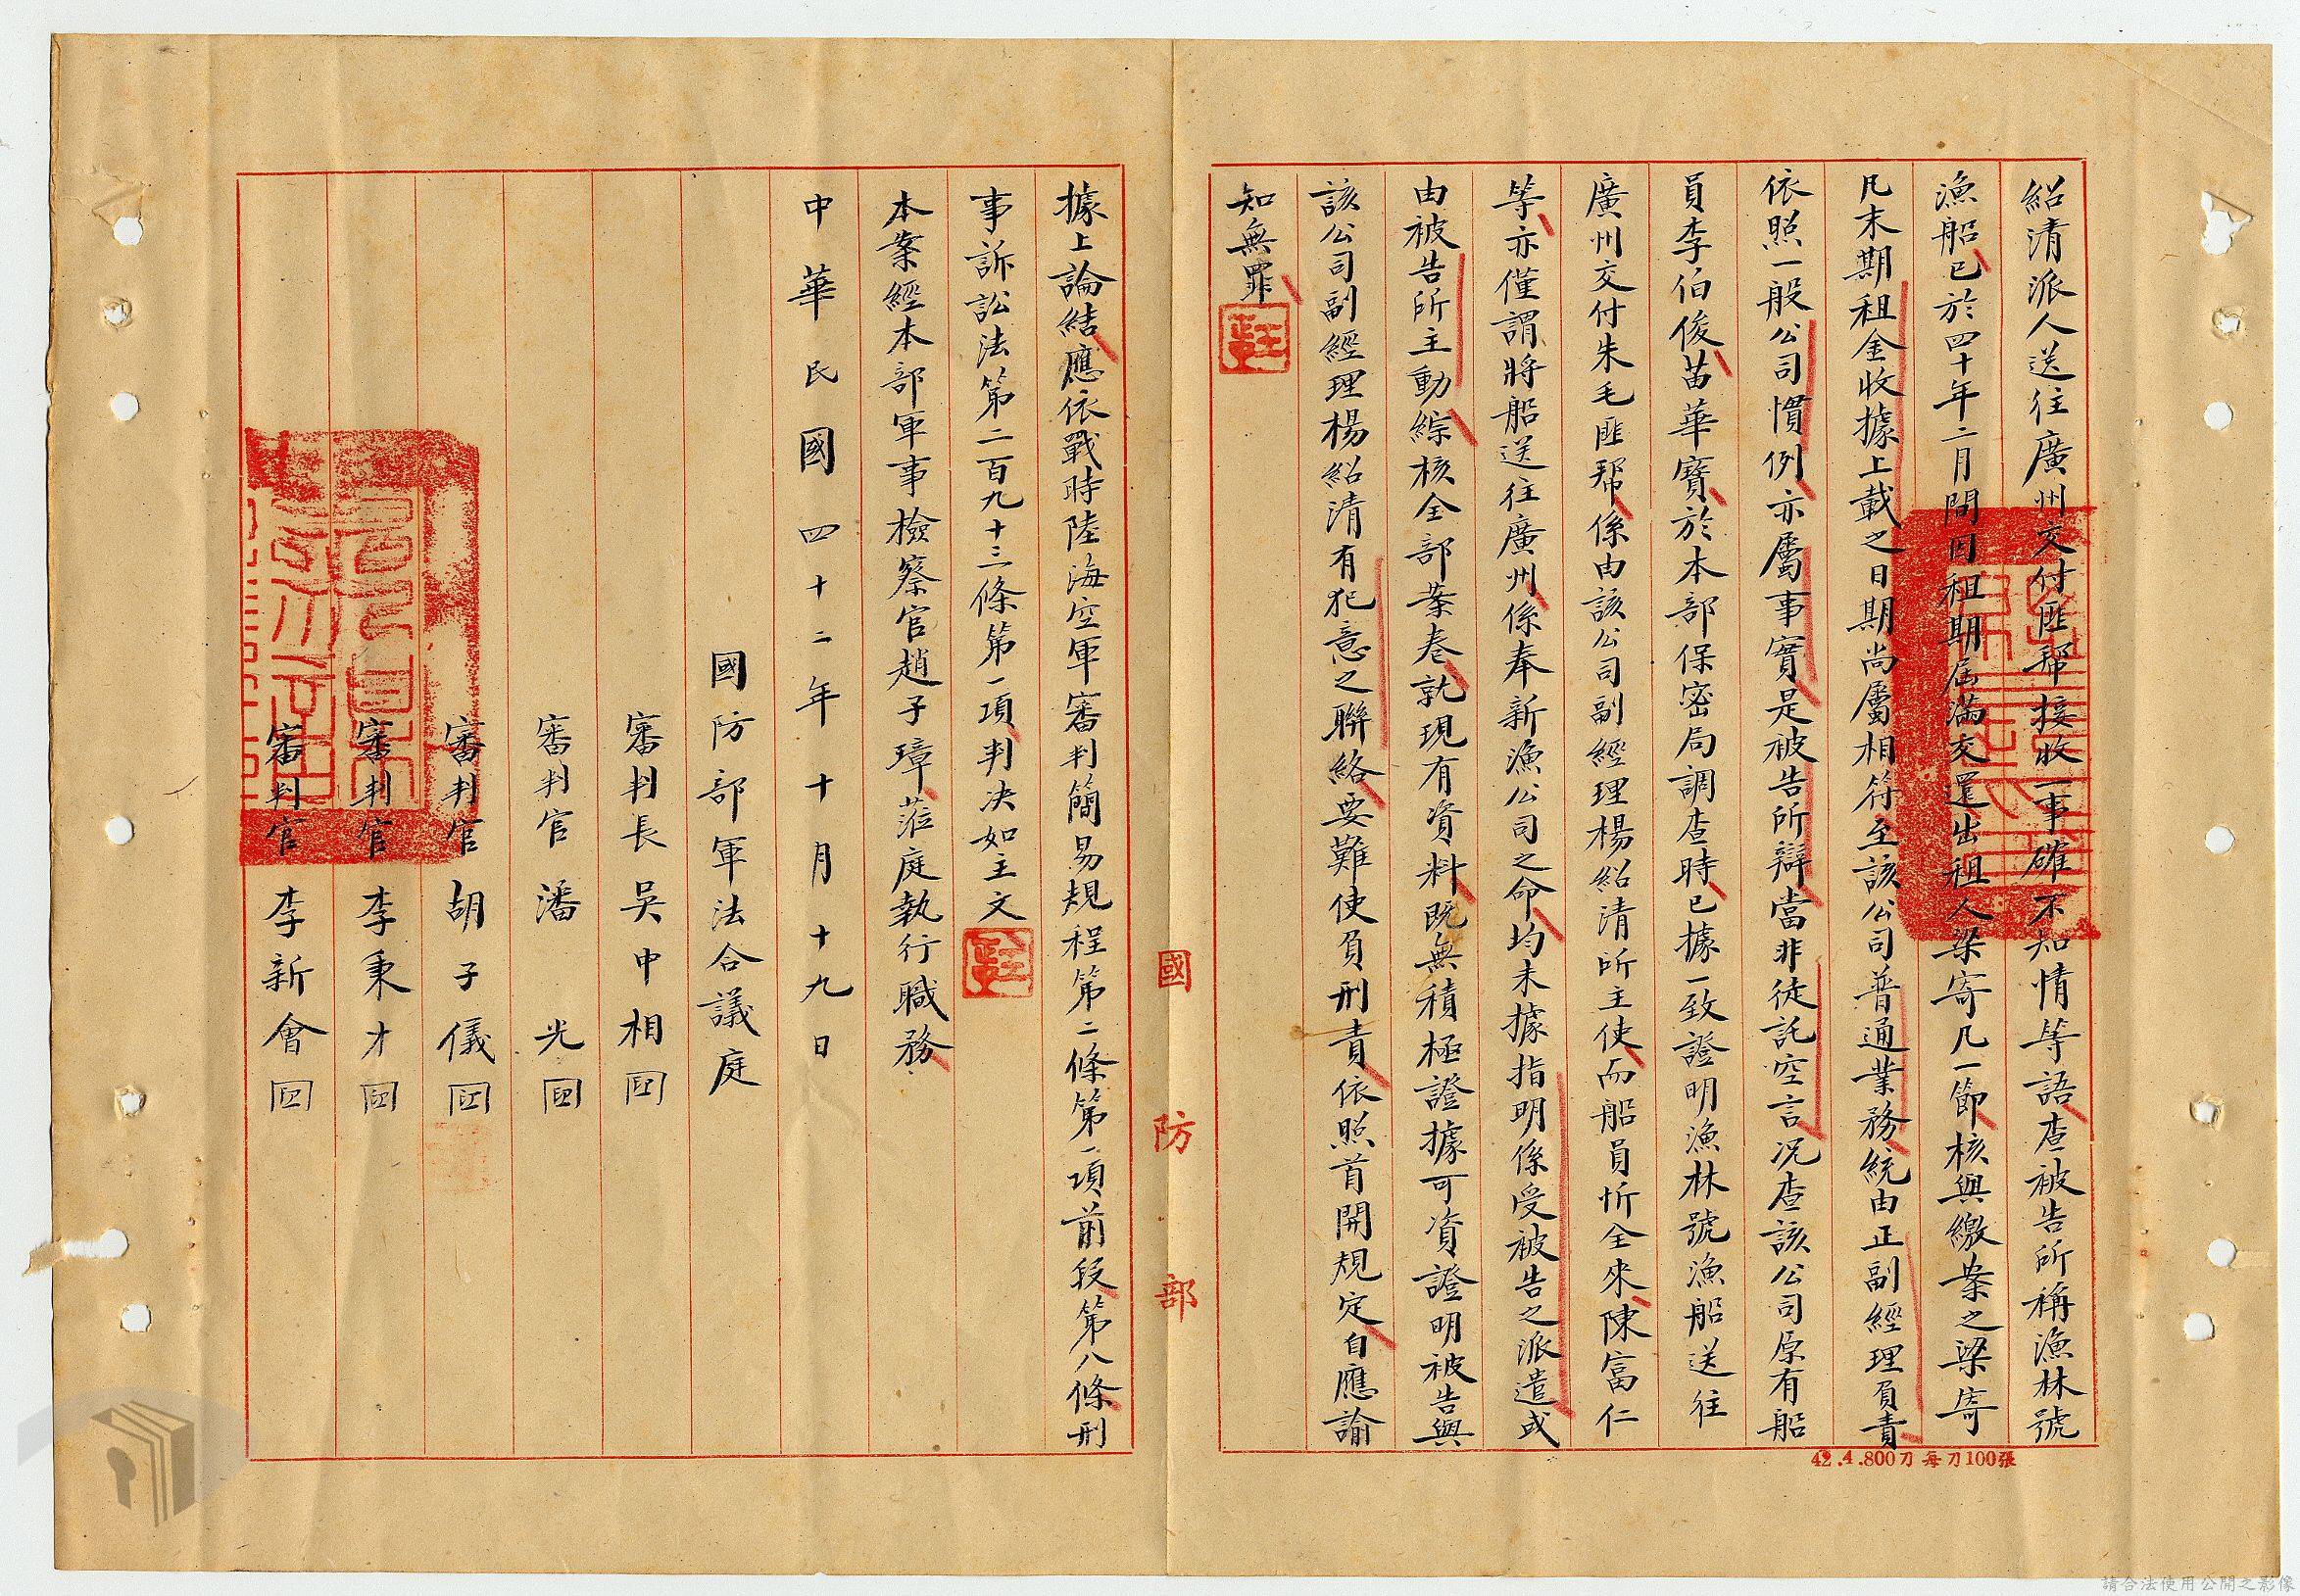 紹清派人送往廣州交付匪幫接收一事確不知情等語查被告所稱漁林號
漁船已於四十年二月間因租期屆滿交還出租人梁寄凡一節核與繳案之梁寄
凡末期租金收據上載之日期尚屬相符至該公司普通業務統由正副經理負責
依照一般公司慣例亦屬事實是被告所辯當非徒託空言況查該公司原有船
員李伯俊苗華寶於本部保密局調查時已據一致證明漁林號漁船送往
廣州交付朱毛匪幫係由該公司副經理楊紹清所主使而船員忻全來陳富仁
等亦僅謂將船送往廣州係奉新漁公司之命均未據指明係受被告之派遣或
由被告所主動綜核全部案卷就現有資料既無積極證據可資證明被告與
該公司副經理楊紹清有犯意之聯絡要難使負刑責依照首開規定自應諭
知無罪
據上論結應依戰時陸海空軍審判簡易規程第二條第一項前段第八條刑
事訴訟法第二百九十三條第一項判決如主文
本案經本部軍事檢察官趙子璋蒞庭執行職務
中華民國四十二年十月十九日
國防部軍法合議庭
審判長吳中相印
審判官潘光印
審判官胡子儀印
審判官李秉才印
審判官李新會印
國防部
42.4.800刀每刀100張
請合法使用公開之影像